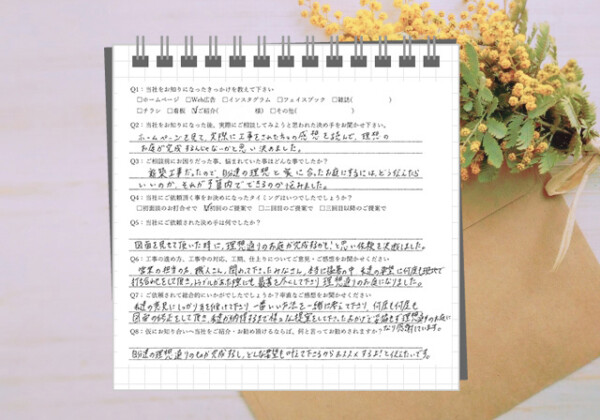 Q1：当社をお知りになったきっかけを教えて下さい
□ホームページ □Web広告 □インスタグラム □フェイスブック □雑誌( )
□チラシ □看板 ☑ご紹介( 様) □その他( )
Q2：当社をお知りになった後、実際にご相談してみようと思われた決め手をお聞かせ下さい。
ホームページを見て、実際に工事をされた方々の感想を読んで、理想の
お庭が完成するんじゃないかと思い決めました。
Q3：ご相談前にお困りだった事、悩まれていた事はどんな事でしたか？
外構工事だったので、自分達の理想と家に合ったお庭にするには、どうしたら
いいのか、それが予算内でできるのか悩みました。
Q4：当社にご依頼頂く事をお決めになったタイミングはいつでしたでしょうか？
□初面談のお打合せで ☑初回のご提案で □二回目のご提案で □三回目以降のご提案で
Q5：当社にご依頼された決め手は何でしたか？
図面を見せて頂いた時に、理想通りのお庭が完成するので！と思い依頼を決断しました。
Q6：工事の進め方、工事中の対応、工期、仕上りについてご意見・ご感想をお聞かせください
営業の担当の方、職人さん、関わって下さったみなさん、本当に猛暑の中、私達の希望に何度も現地で
打ち合わせをして頂き、トラブルがあった際にも最善をつくして下さり理想通りのお庭になりました。
Q7：ご依頼されて総合的にいかがでしたでしょうか？率直なご感想をお聞かせください
私達の意見にしっかり耳を傾けて下さり一番いい方法を一緒に考えて下さり何度も何度も
図面の修正をして頂き、私達が納得するまで様々な提案をして下さったおかげで妥協せず理想通りのお庭に
なり感謝しています。
Q8：仮にお知り合いへ当社をご紹介・お勧め頂けるならば、何と言ってお勧めされますか？
自分達の理想通りのものが完成するし、どんな希望も叶えて下さるからおススメするよ！と伝えたいです。